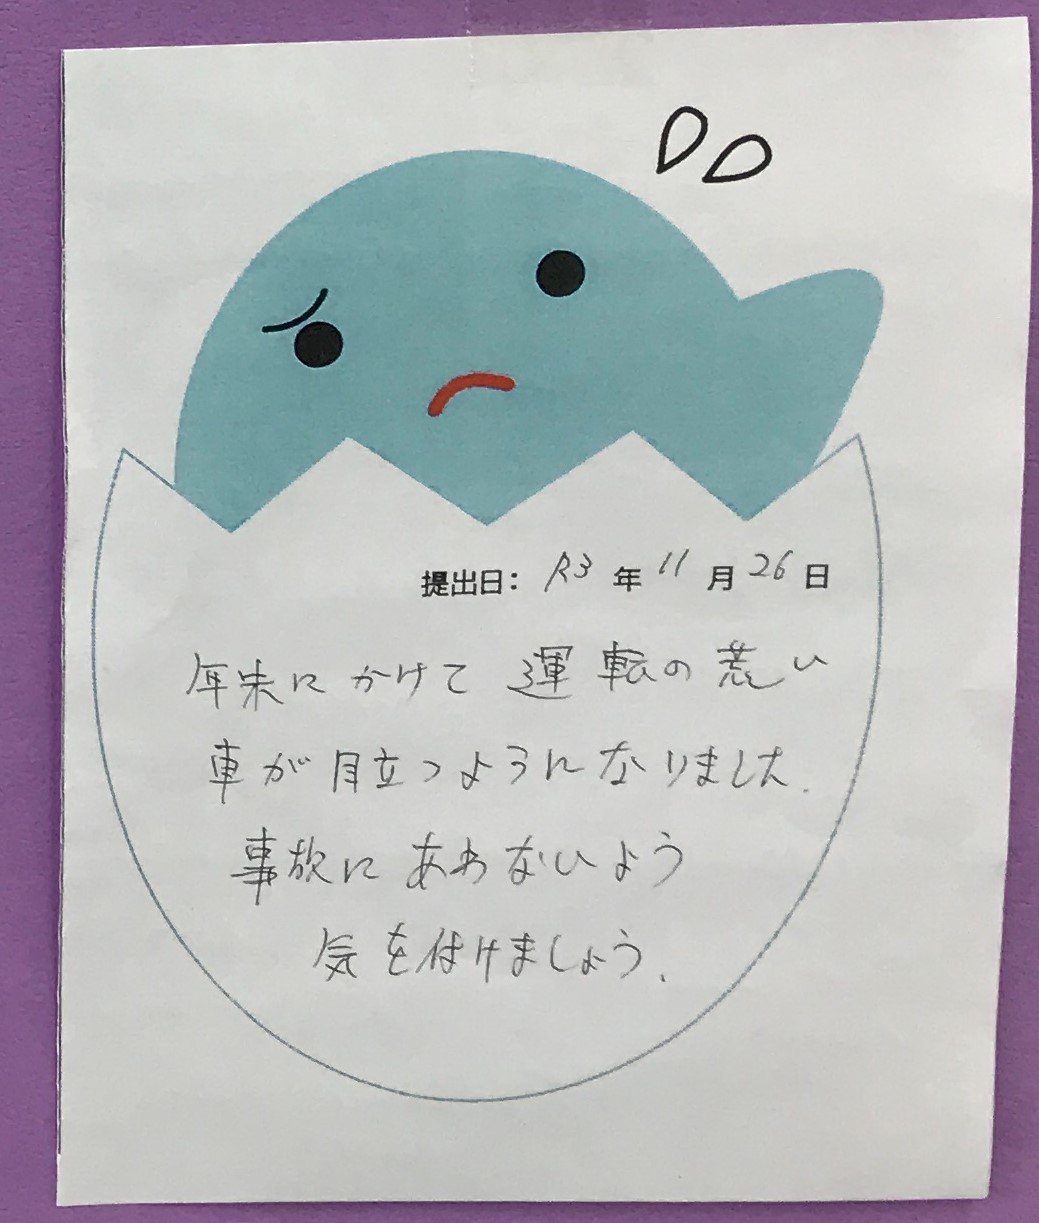 提出日： R3 年 11 月 26 日
年末にかけて 運転の荒い
車が目立つようになりました.
事故にあわないよう
気を付けましょう.